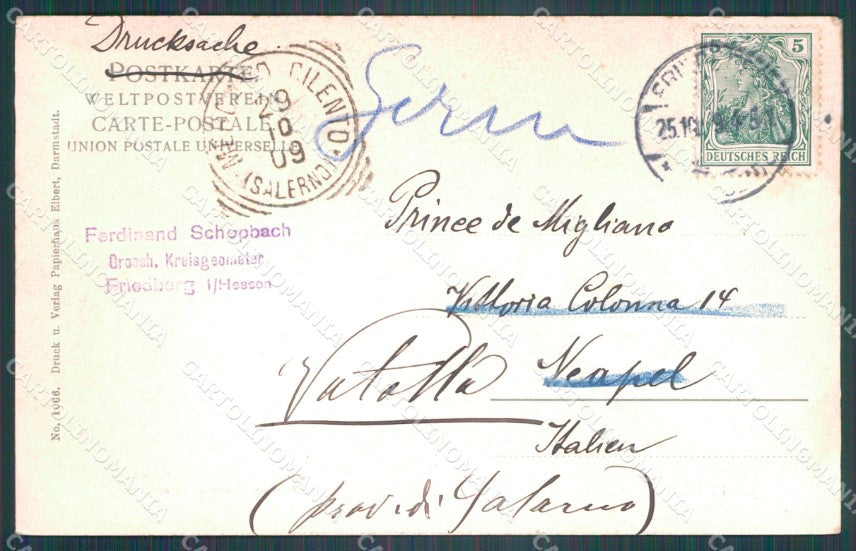 Drucksache.
POSTKARTE
WELTPOSTVEREIN
CARTE-POSTALE
UNION POSTALE UNIVERSELLE
CILENTO
9
10
09
(SALERNO)
5 5
DEUTSCHES REICH
25.10.
Ferdinand Schopbach
Grossh. Kreisgeometer
Friedberg i/Hessen
Prince de Migliano
Vittoria Colonna 14
Vatolla Neapel
Italien
(prov. di Salerno)
No. 1066. Druck u. Verlag Papierhaus Elbert, Darmstadt.
CARTOLINOMANIA